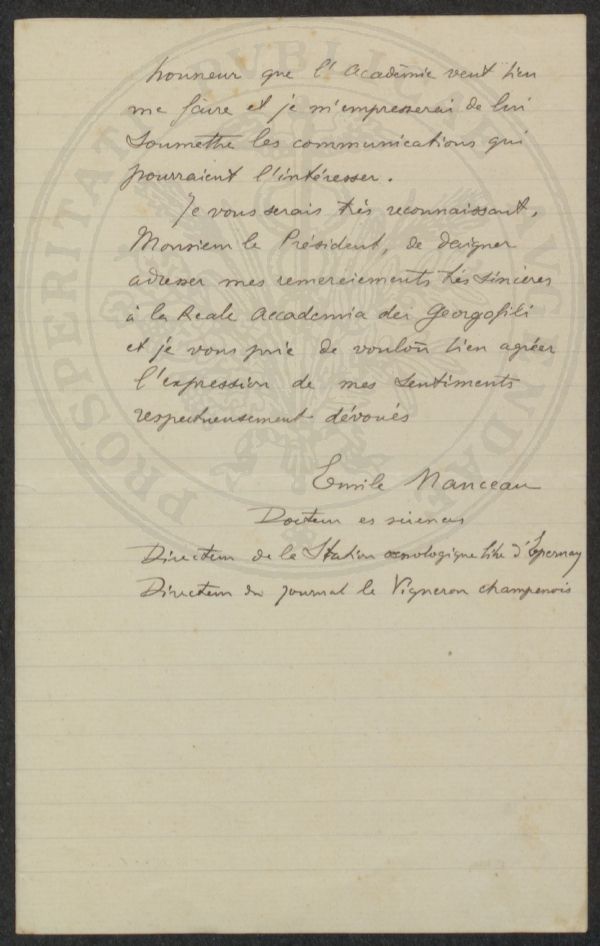 honneur que l'Académie veut bien
me faire et je m'empresserai de lui
soumettre les communications qui
pourraient l'intéresser.
Je vous serais très reconnaissant,
Monsieur le Président, de daigner
adresser mes remerciements très sincères
à la Reale Accademia dei Georgofili
et je vous prie de vouloir bien agréer
l'expression de mes sentiments
respectueusement dévoués
Emile Manceau
Docteur es sciences
Directeur de la Station œnologique d'Epernay
Directeur du journal le Vigneron champenois
PROSPERITATI PUBLICAE AUGENDAE